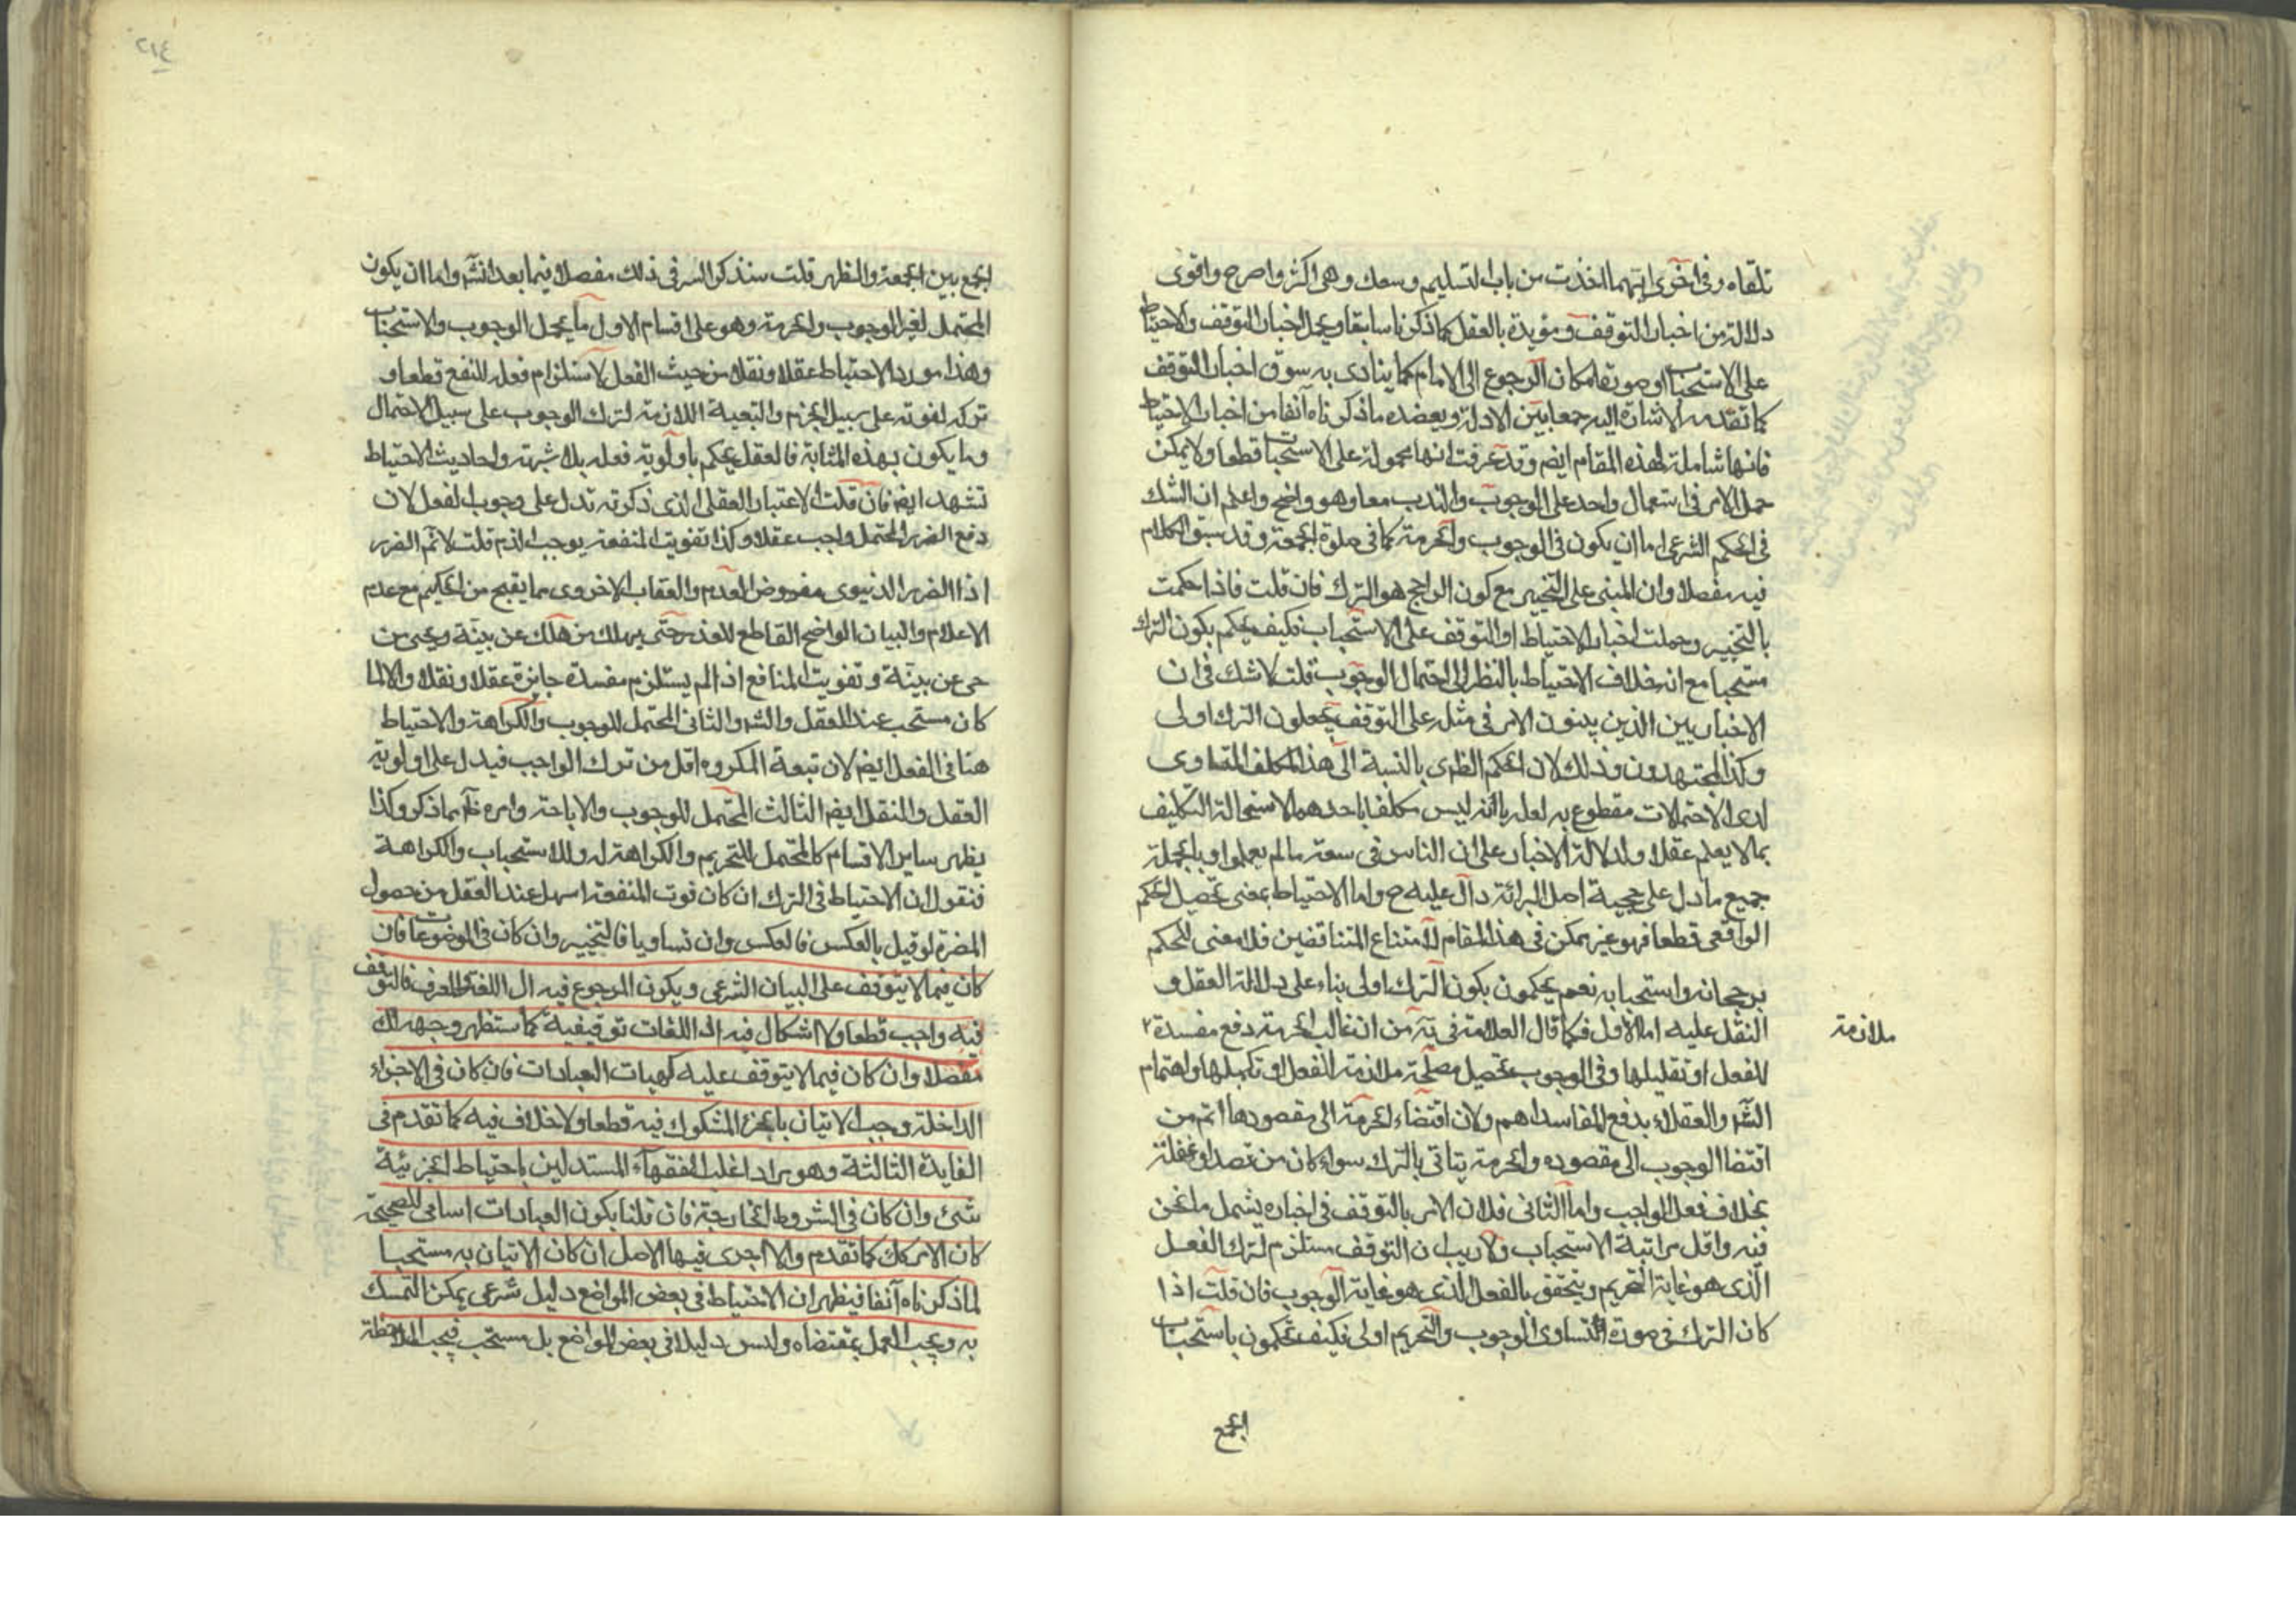 تلقاه وفى اخرى ايهما اخذت من باب التسليم وسعك وهى اكثر واصرح واقوى
دلالة من اخبار التوقف ومؤيدة بالعقل كما ذكرنا سابقا ويحمل اخبار التوقف والاحتياط
على الاستحباب او صورة امكان الرجوع الى الامام كما ينادى به سوق اخبار التوقف
كما تقدمه الاشارة اليه جمعا بين الادلة ويعضده ما ذكرناه آنفا من اخبار الاحتياط
فانها شاملة لهذه المقام ايضم وقد عرفت انها محمولة على الاستحباب قطعا ولا يمكن
حمل الامر فى استعمال واحد على الوجوب والندب معا وهو واضح واعلم ان الشك
فى الحكم الشرعى اما ان يكون فى الوجوب والحرمة كما فى صلوة الجمعة وقد سبق الكلام
فيه مفصلا وان المبنى على التخيير مع كون الراجح هو الترك فان قلت فاذا حكمت
بالتخيير وحملت اخبار الاحتياط او التوقف على الاستحباب فكيف يحكم بكون الترك
مستحبا مع انه خلاف الاحتياط بالنظر الى احتمال الوجوب قلت لا شك فى ان
الاخباريين الذين يبنون الامر فى مثله على التوقف يجعلون الترك اولى
وكذا المجتهدون وذلك لان الحكم الظهرى بالنسبة الى هذا المكلف المتساوى
لدى الاحتمالات مقطوع به لعلمه بانه ليس مكلفا باحدهما لاستحالة التكليف
بما لا يعلم عقلا ولدلالة الاخبار على ان الناس فى سعة ما لم يعلموا وبالجملة
جميع ما دل على حجية اصل البرائة دال عليه ح واما الاحتياط بمعنى تحصيل الحكم
الواقعى قطعا فهو غير ممكن فى هذا المقام لامتناع المتناقضين فلا معنى للحكم
برجحانه واستحبابه نعم يحكمون بكون الترك اولى بناء على دلالة العقل و
النقل عليه اما الاول فكما قال العلامة فى يه من ان غالب الحرمة دفع مفسدة ٢
ملازمة
للفعل او تقليلها وفى الوجوب تحصيل مصلحة ملازمة للفعل او تكميلها واهتمام
الشر والعقلاء بدفع المفاسد اهم ولان اقتضاء الحرمة الى مقصودها اتم من
اقتضا الوجوب الى مقصوده والحرمة يتاتى بالترك سواء كان من قصد او غفلة
بخلاف فعل الواجب واما الثانى فلان الامر بالتوقف فى اخباره يشمل ما نحن
فيه واقل مراتبة الاستحباب ولا ريب ان التوقف مستلزم لترك الفعل
الذى هو غاية التحريم ويتحقق بالفعل الذى هو غاية الوجوب فان قلت اذا
كان الترك فى صورة التساوى الوجوب والتحريم اولى فكيف تحكمون باستحباب
الجمع
٢١٤
الجمع بين الجمعة والظهر قلت سنذكر السر فى ذلك مفصلا فيما بعد انشر واما ان يكون
المحتمل لغير الوجوب والحرمة وهو على اقسام الاول ما يحمل الوجوب والاستحباب
وهذا مورد الاحتياط عقلا ونقلا من حيث الفعل لاستلزام فعله للنفع قطعا و
تركه لفوته على سبيل الجزم والتبعية اللازمة لترك الوجوب على سبيل الاحتمال
وما يكون بهذه المثابة فالعقل يحكم باولوية فعله بلا شبهة واحاديث الاحتياط
تشهد ايضم فان قلت الاعتبار العقلى الذى ذكرته تدل على وجوب الفعل لان
دفع الضرر المحتمل واجب عقلا وكذا تفويت المنفعة يوجب الذم قلت لا نم الضرر
اذا الضرر الدنيوى مفروض العدم والعقاب الاخروى مما يقبح من الحكيم مع عدم
الاعلام والبيان الواضح القاطع للعذر حتى يهلك من هلك عن بينة ويحيى من
حى عن بينة وتفويت المنافع اذا لم يستلزم مفسدة جايزة عقلا ونقلا والا لما
كان مستحب عند العقل والشر والثانى المحتمل للوجوب والكراهة والاحتياط
هنا فى الفعل ايضم لان تبعة المكروه اقل من ترك الواجب فيدل على اولوية
العقل والنقل ايضم الثالث المحتمل للوجوب والاباحة وامره ظم بما ذكر وكذا
يظهر ساير الاقسام كالمحتمل للتحريم والكراهة له وللاستحباب والكراهة
فنقول ان الاحتياط فى الترك ان كان فوت المنفعة اسهل عند العقل من حصول
المضرة لو قيل بالعكس فالعكس وان تساويا فالتخيير وان كان فى الموضوعات فان
كان فيما لا يتوقف على البيان الشرعى ويكون المرجوع فيه ال اللغة والعرف فالتوقف
فيه واجب قطعا ولا اشكال فيه اذ اللغات توقيفية كما ستظهر وجهه لك
مفصلا وان كان فيما لا يتوقف عليه كهيات العبادات فان كان فى الاجزاء
الداخلة وجب الاتيان بالجزء المشكوك فيه قطعا ولا خلاف فيه كما تقدم فى
الفايدة الثالثة وهو مراد اغلب الفقهاء المستدلين باحتياط الجزئية
شئ وان كان فى الشروط الخارجة فان قلنا بكون العبادات اسامى للصحيحة
كان الامر كك كما تقدم والا اجرى فيها الاصل ان كان الاتيان به مستحبا
لما ذكرناه آنفا فيظهر ان الاحتياط فى بعض المواضع دليل شرعى يمكن التمسك
به ويجب العمل بمقتضاه وليس دليلا فى بعض المواضع بل مستحب فيجب الملاحظة